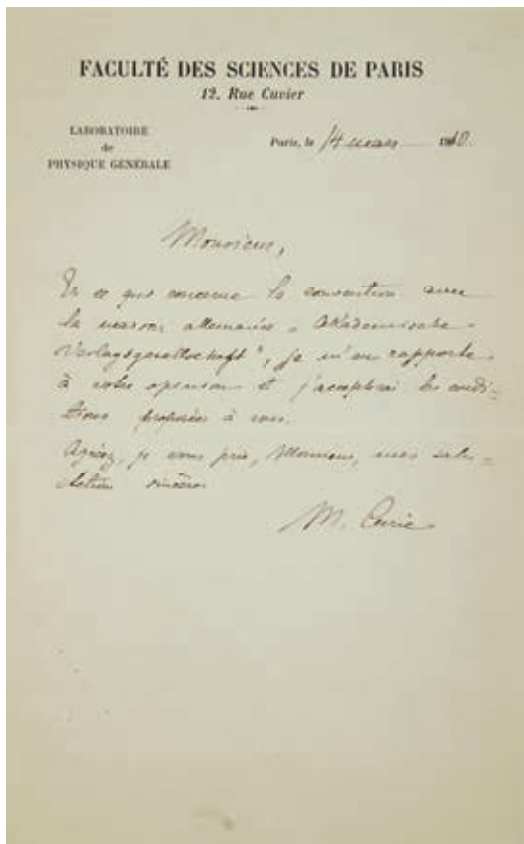 FACULTÉ DES SCIENCES DE PARIS
12, Rue Cuvier
LABORATOIRE
de
PHYSIQUE GÉNÉRALE
Paris, le 14 mars 1910.
Monsieur,
En ce qui concerne la convention avec
la maison allemande „Akademische
Verlagsgesellschaft", je m'en rapporte
à votre opinion et j'accepterai les condi-
tions proposées à vous.
Agréez, je vous prie, Monsieur, mes salu-
tations sincères
M. Curie